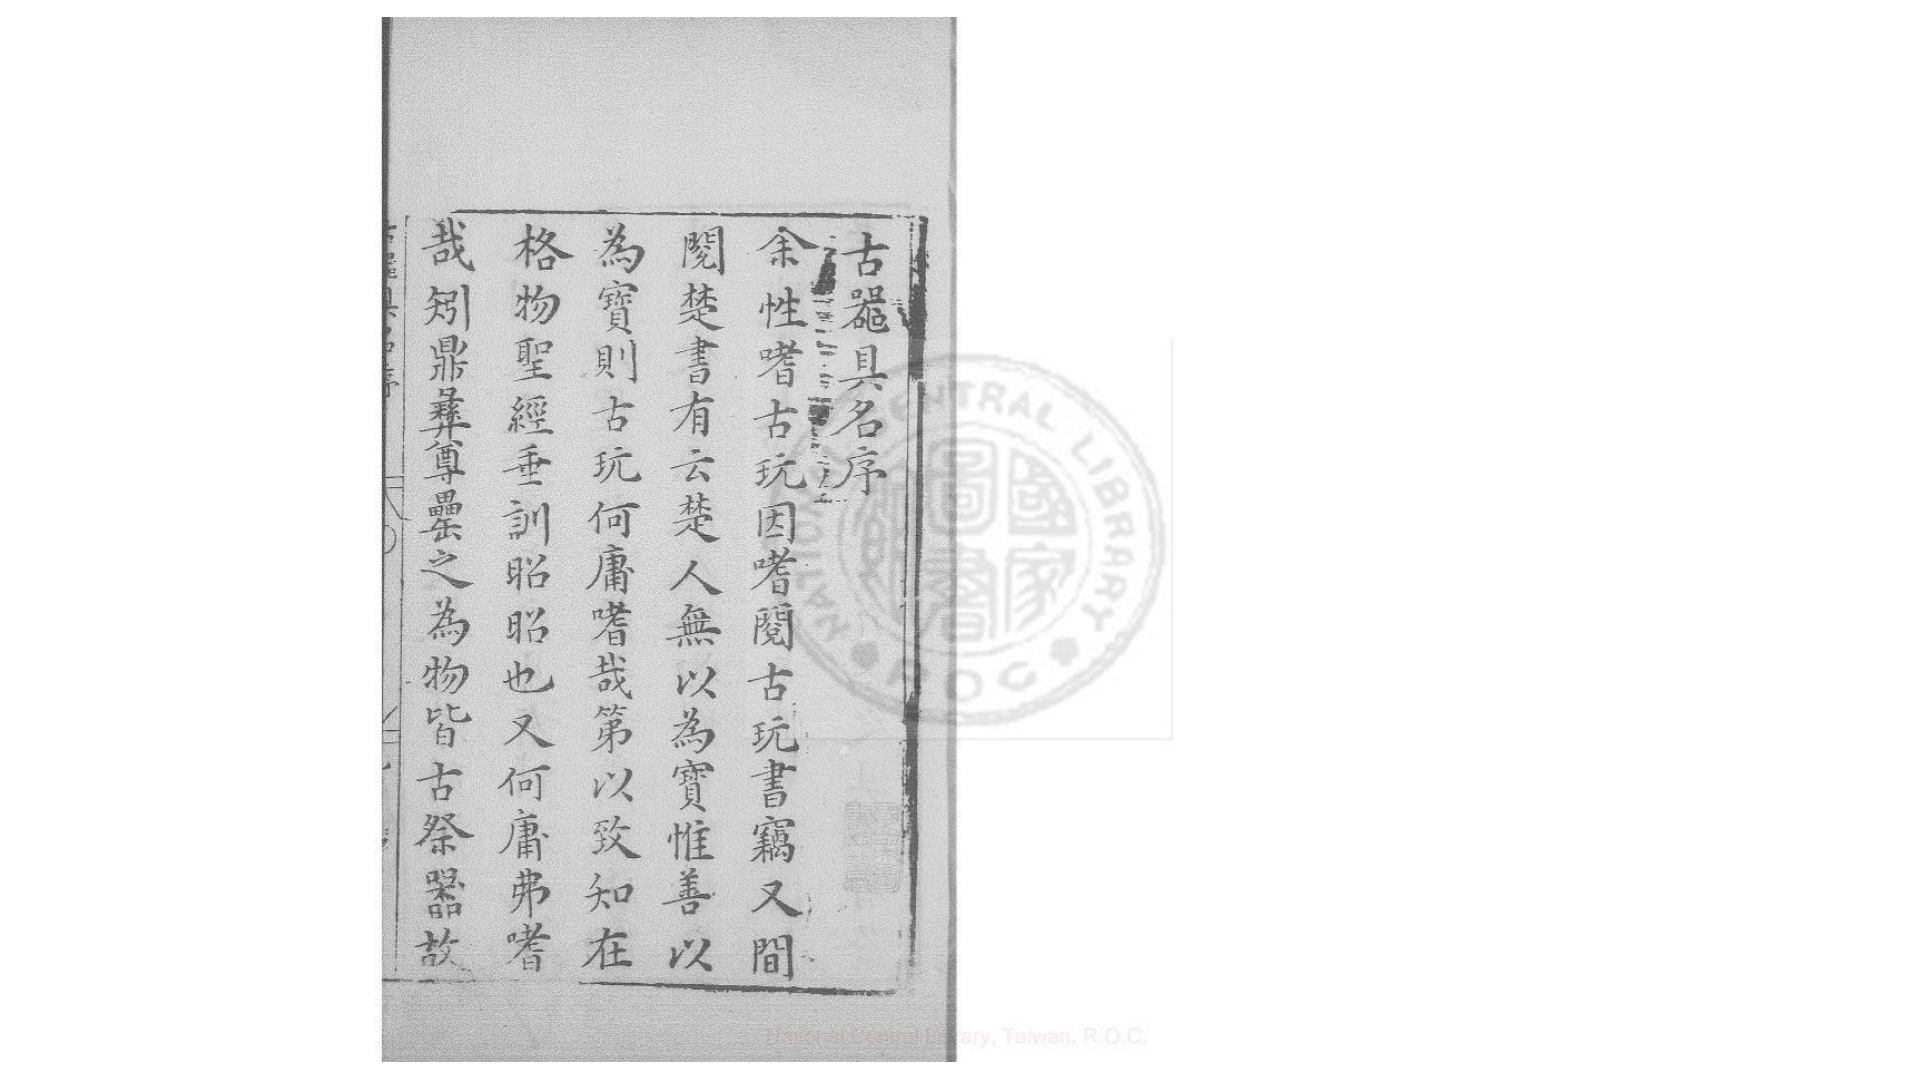 古器具名序
余性嗜古玩因嗜閱古玩書竊又間
閱楚書有云楚人無以為寶惟善以
為寶則古玩何庸嗜哉第以致知在
格物聖經垂訓昭昭也又何庸弗嗜
哉矧鼎彝尊罍之為物皆古祭器故
NATIONAL CENTRAL LIBRARY
ROC
國家圖書館
National Central Library, Taiwan, R.O.C.